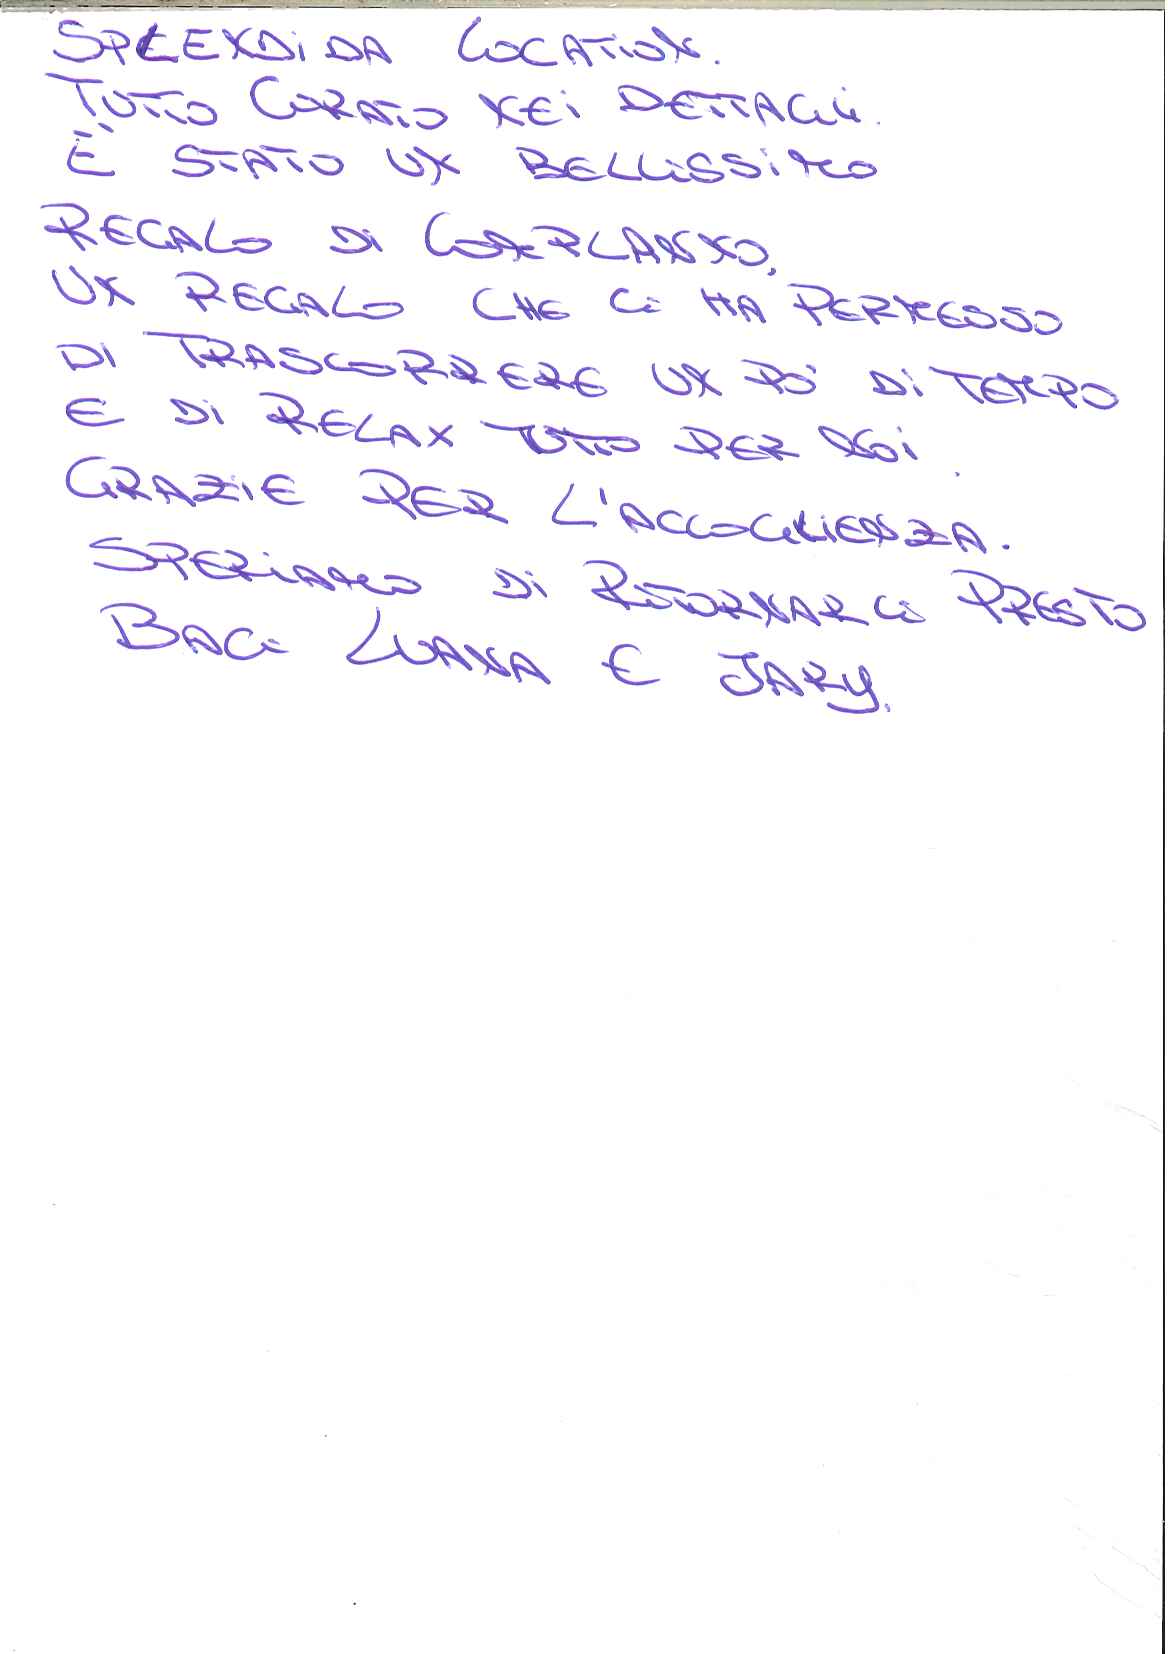 SPLENDIDA LOCATION.
TUTTO CURATO NEI DETTAGLI.
È STATO UN BELLISSIMO
REGALO DI COMPLEANNO,
UN REGALO CHE CI HA PERMESSO
DI TRASCORRERE UN PO' DI TEMPO
E DI RELAX TUTTO PER NOI.
GRAZIE PER L'ACCOGLIENZA.
SPERIAMO DI RITORNARCI PRESTO
BACI LUANA E JARY.